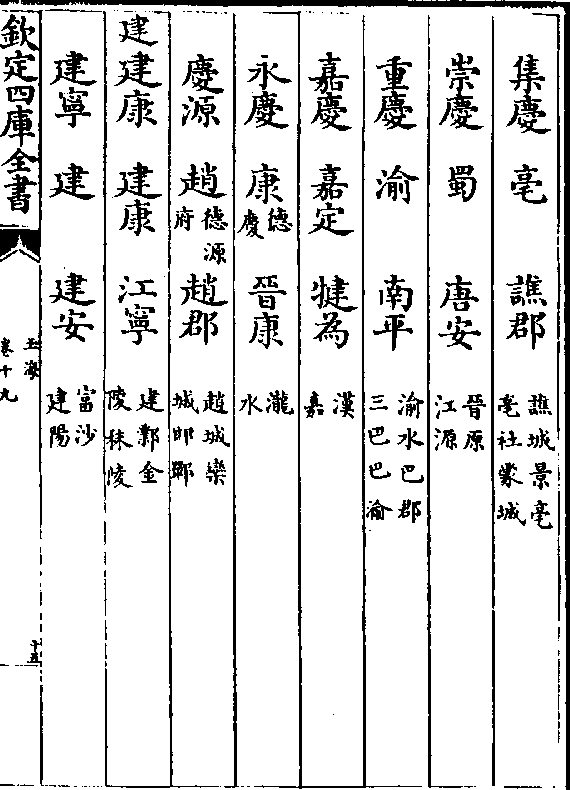 集慶 亳 譙郡 譙城景亳亳社蒙城
崇慶 蜀 唐安 晉原江源
重慶 渝 南平 渝水巴郡三巴巴渝
嘉慶 嘉定 犍為 漢嘉
永慶 康 德慶 晉康 瀧水
慶源 趙 德源府 趙郡 趙城欒城邯鄲
建 建康 建康 江寧 建鄴金陵秣陵
建寧 建 建安 富沙建陽
欽定四庫全書
玉海
卷十九
十五